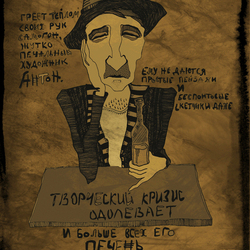 ГРЕЕТ ТЕПЛОМ
СВОИХ РУК
САМОГОН,
ЖУТКО
ПЕЧАЛЬНЫЙ
ХУДОЖНИК
АНТОН.
ЕМУ НЕ ДАЮТСЯ
ПРОСТЫЕ ПЕЙЗАЖИ
И
БЕСПОНТОВЫЕ
СКЕТЧИКИ ДАЖЕ
ТВОРЧЕСКИЙ КРИЗИС
ОДОЛЕВАЕТ
И БОЛЬШЕ ВСЕХ ЕГО
ПЕЧЕНЬ